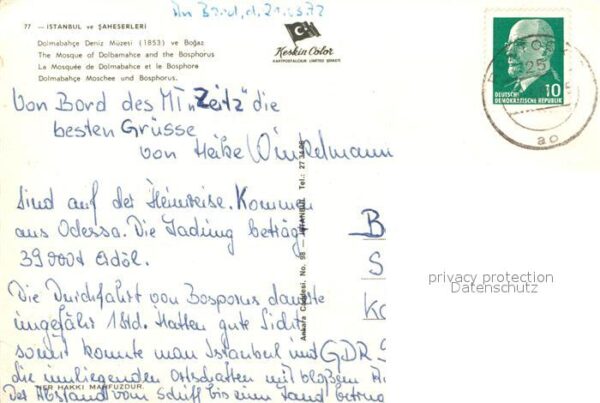 An Bord, d. 21.0
77 - ISTANBUL ve ŞAHESERLERİ
Dolmabahçe Deniz Müzesi (1853) ve Boğaz
The Mosque of Dolbamahce and the Bosphorus
La Mosquée de Dolmabahce et le Bosphore
Dolmabahçe Moschee und Bosphorus.
Keskin Color
KARTPOSTALCILIK LIMITED ŞİRKETİ
10
DEUTSCHE
DEMOKRATISCHE REPUBLIK
25
ao
Von Bord des MT "Zeitz" die
besten Grüsse
von Heike Winkelmann
Sind auf der Heimreise. Kommen
aus Odessa. Die Ladung beträgt
39 000 t Erdöl.
Die Durchfahrt von Bosporus dauerte
ungefähr 1 Std. Hatten gute Sicht
somit konnte man Istanbul und
die umliegenden Ortschaften mit bloßem A
Der Abstand vom Schiff bis eine Land betrug
B
S
Ka
GDR
Ankara Caddesi, No. 98 - İSTANBUL Tel.: 27
HER HAKKI MAHFUZDUR.
privacy protection
Datenschutz